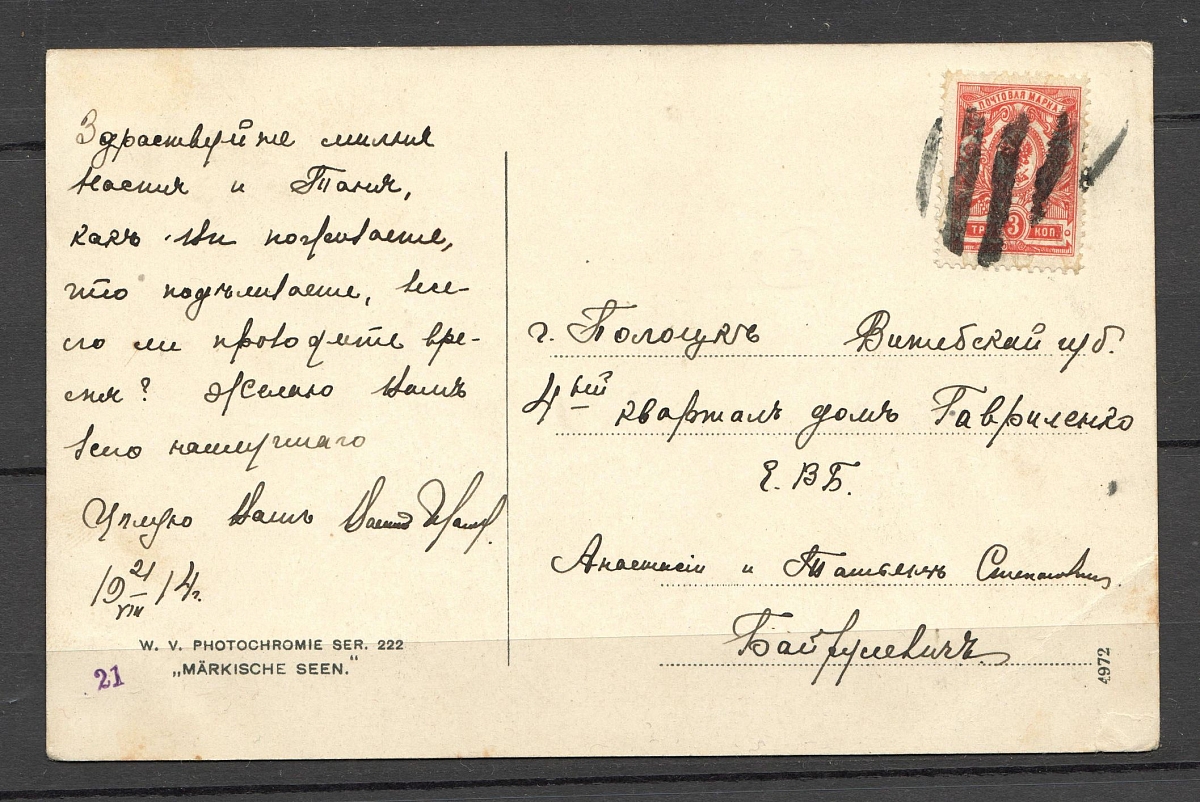 Здраствуйте милыя
Настя и Таня,
какъ Вы поживаете,
что подѣлываете, весе-
ло ли проводите вре-
мя? Желаю Вамъ
всего наилучшаго
Цѣлую Васъ Вашъ
19 21/VIII 14 г.
W. V. PHOTOCHROMIE SER. 222
„MÄRKISCHE SEEN."
21
ПОЧТОВАЯ МАРКА
3
КОП.
г. Полоцкъ Витебской губ.
4ый кварталъ домъ Гавриленко
Е. В Б.
Анастасіи и Татьянѣ Степановнѣ
Байрулевичъ
4972